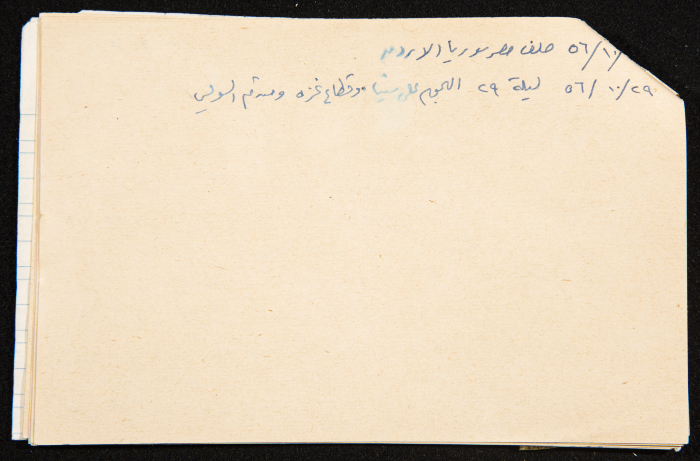 /١٠/٥٦ حلف مصر سوريا الاردن
٢٩/١٠/٥٦ ليلة ٢٩ الهجوم على سينا وقطاع غزه ومن ثم السويس